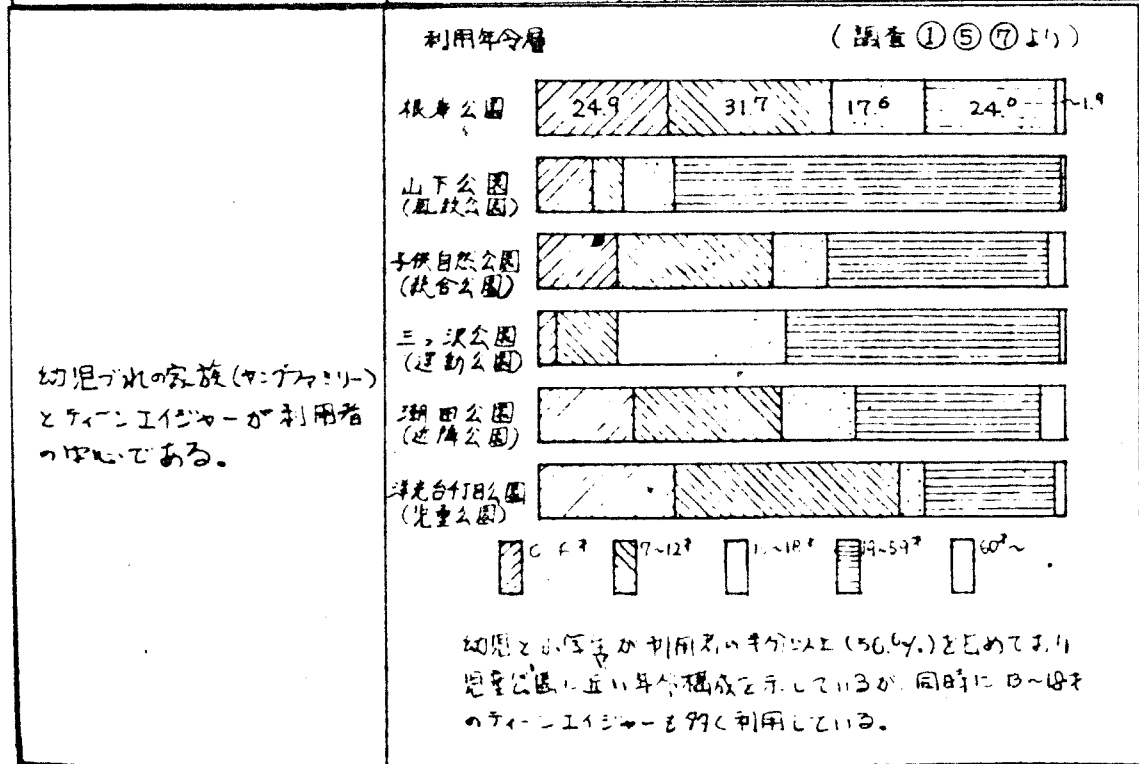 幼児づれの家族(ヤングファミリー)
とティーンエイジャーが利用者
の中心である。
利用年令層
(調査①⑤⑦より)
根岸公園
24.9
31.7
17.6
24.0
~1.9
山下公園
(風致公園)
子供自然公園
(総合公園)
三ッ沢公園
(運動公園)
潮田公園
(近隣公園)
洋光台4丁目公園
(児童公園)
7~12才
19~59才
60才~
幼児と小学生が利用者の半分以上(56.6%)を占めており
児童公園に近い年令構成を示しているが、同時に13~18才
のティーンエイジャーも多く利用している。